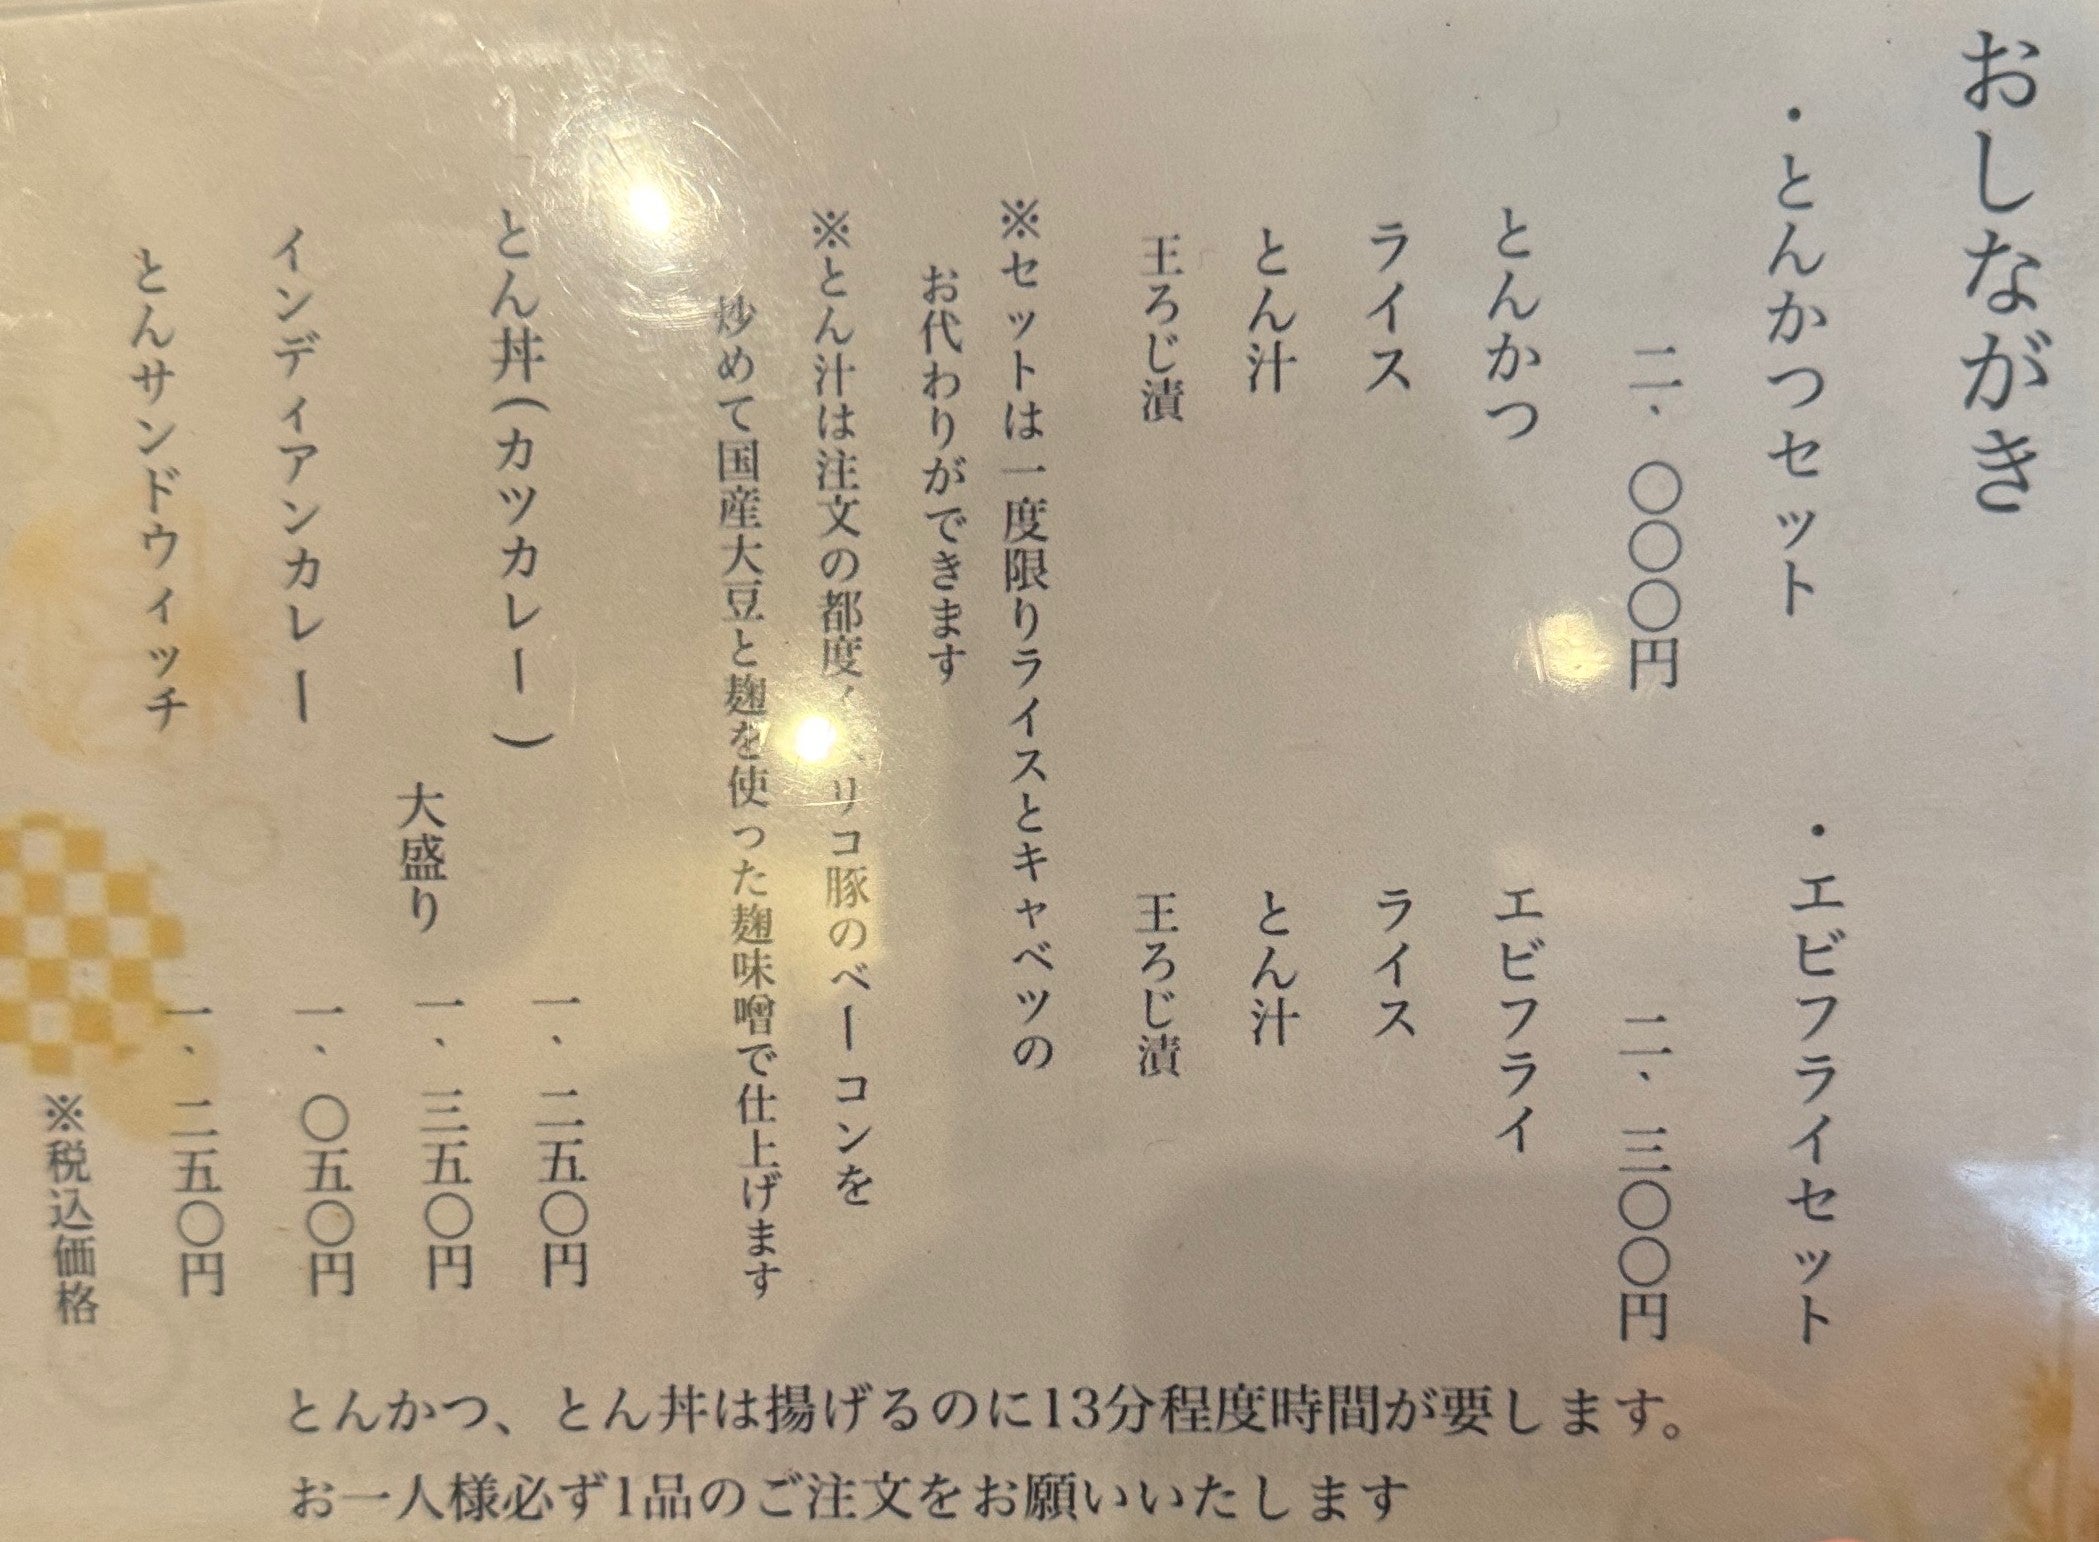 おしながき
・とんかつセット
二、〇〇〇円
とんかつ
ライス
とん汁
王ろじ漬
・エビフライセット
二、三〇〇円
エビフライ
ライス
とん汁
王ろじ漬
※セットは一度限りライスとキャベツの
お代わりができます
※とん汁は注文の都度イベリコ豚のベーコンを
炒めて国産大豆と麹を使った麹味噌で仕上げます
とん丼(カツカレー) 一、二五〇円
大盛り 一、三五〇円
インディアンカレー 一、〇五〇円
とんサンドウィッチ 一、二五〇円
※税込価格
とんかつ、とん丼は揚げるのに13分程度時間が要します。
お一人様必ず1品のご注文をお願いいたします